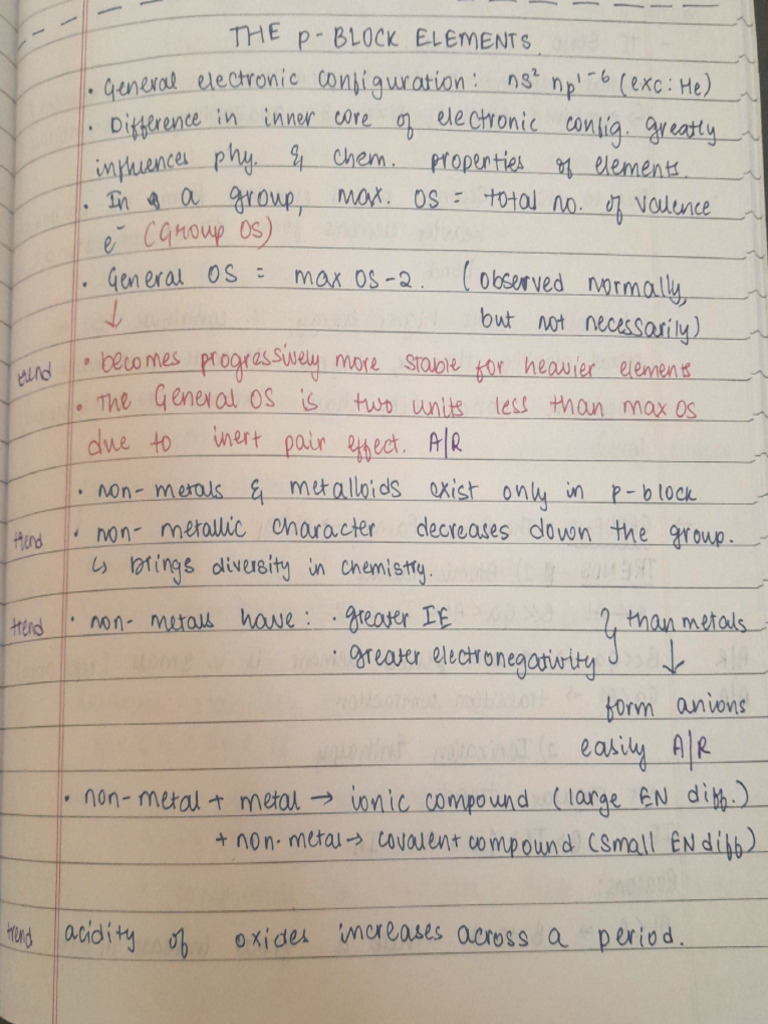 THE p-BLOCK ELEMENTS.
• General electronic configuration: ns² np¹⁻⁶ (exc: He)
• Difference in inner core of electronic config. greatly
influences phy. & chem. properties of elements.
• In a group, max. OS = total no. of valence
e⁻ (Group OS)
• General OS = max OS-2. (observed normally,
↓ but not necessarily)
trend • becomes progressively more stable for heavier elements
• The General OS is two units less than max OS
due to inert pair effect. A/R
• non-metals & metalloids exist only in p-block
trend • non-metallic character decreases down the group.
↳ brings diversity in chemistry.
trend • non-metals have: • greater IE } than metals
• greater electronegativity ↓
form anions
easily A/R
• non-metal + metal → ionic compound (large EN diff.)
+ non-metal → covalent compound (small EN diff)
trend acidity of oxides increases across a period.